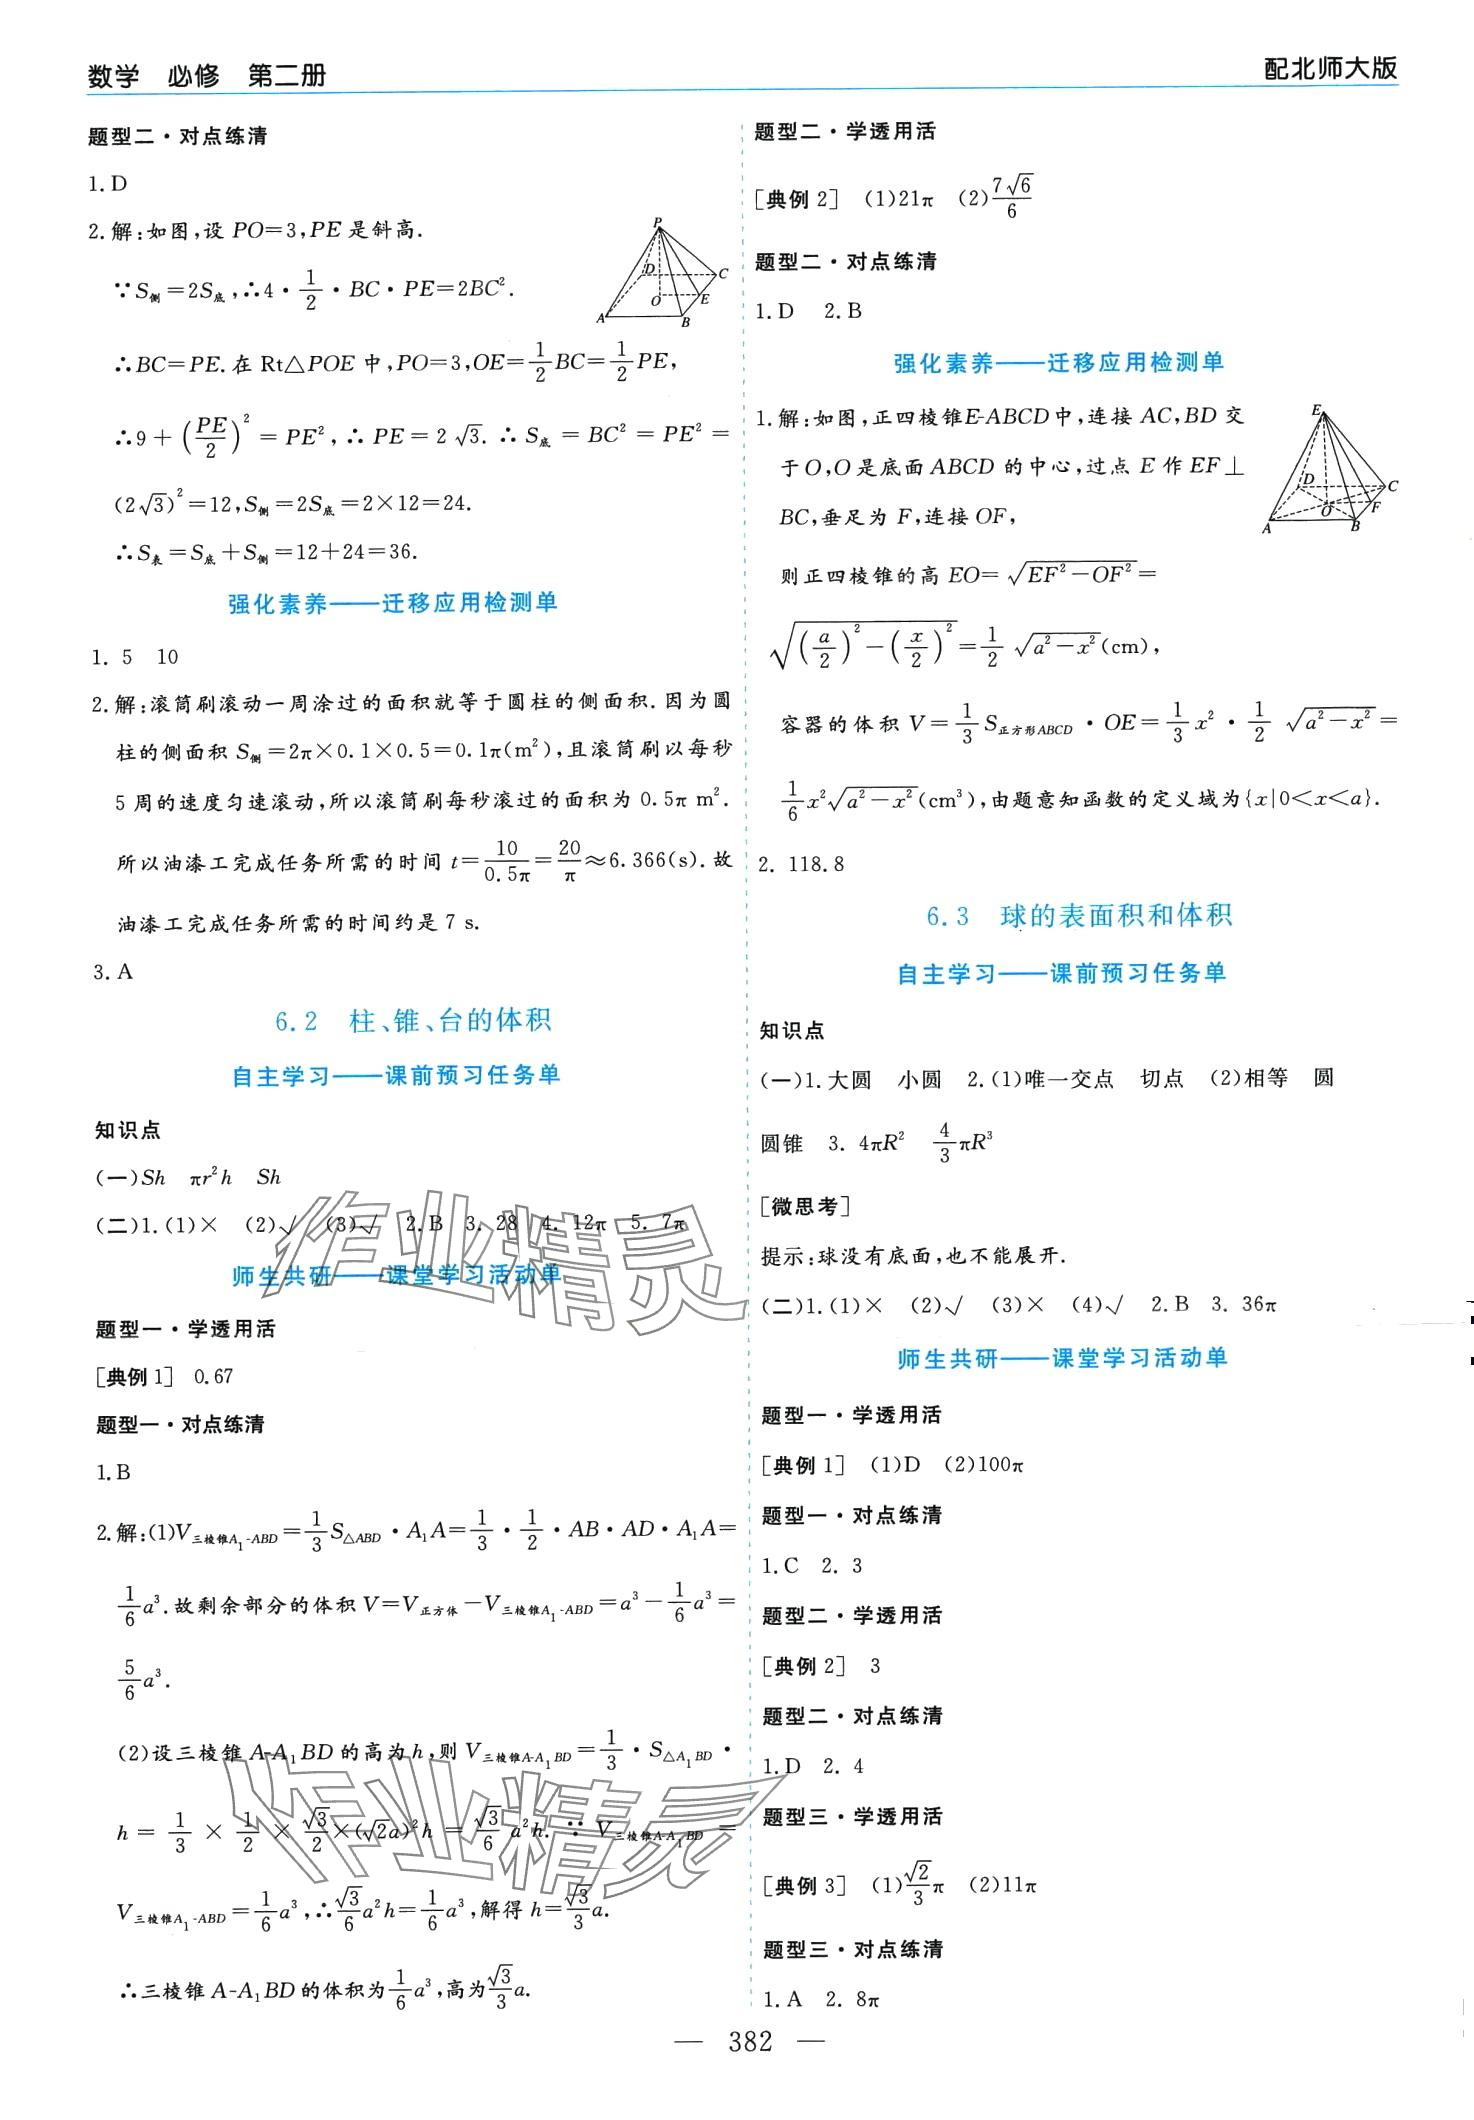 数学 必修 第二册
配北师大版
题型二·对点练清
1.D
2.解:如图,设 PO=3,PE 是斜高.
∵S侧=2S底,∴4·1/2·BC·PE=2BC².
∴BC=PE.在 Rt△POE 中,PO=3,OE=1/2BC=1/2PE,
∴9+(PE/2)²=PE²,∴PE=2√3.∴S底=BC²=PE²=
(2√3)²=12,S侧=2S底=2×12=24.
∴S表=S底+S侧=12+24=36.
P
D
C
O
E
A
B
强化素养——迁移应用检测单
1. 5 10
2.解:滚筒刷滚动一周涂过的面积就等于圆柱的侧面积.因为圆
柱的侧面积 S侧=2π×0.1×0.5=0.1π(m²),且滚筒刷以每秒
5 周的速度匀速滚动,所以滚筒刷每秒滚过的面积为 0.5π m².
所以油漆工完成任务所需的时间 t=10/0.5π=20/π≈6.366(s).故
油漆工完成任务所需的时间约是 7 s.
3.A
6.2 柱、锥、台的体积
自主学习——课前预习任务单
知识点
(一)Sh πr²h Sh
(二)1.(1)× (2)√ (3)√ 2.B 3. 28 4. 12π 5. 7π
师生共研——课堂学习活动单
题型一·学透用活
[典例1] 0.67
题型一·对点练清
1.B
2.解:(1)V三棱锥A₁-ABD=1/3S△ABD·A₁A=1/3·1/2·AB·AD·A₁A=
1/6a³.故剩余部分的体积 V=V正方体-V三棱锥A₁-ABD=a³-1/6a³=
5/6a³.
(2)设三棱锥 A-A₁BD 的高为 h,则 V三棱锥A-A₁BD=1/3·S△A₁BD·
h=1/3×1/2×√3/2×(√2a)²h=√3/6a²h.∵V三棱锥A-A₁BD=
V三棱锥A₁-ABD=1/6a³,∴√3/6a²h=1/6a³,解得 h=√3/3a.
∴三棱锥 A-A₁BD 的体积为1/6a³,高为√3/3a.
题型二·学透用活
[典例2] (1)21π (2)7√6/6
题型二·对点练清
1.D 2.B
强化素养——迁移应用检测单
1.解:如图,正四棱锥E-ABCD中,连接 AC,BD 交
于O,O 是底面 ABCD 的中心,过点 E 作 EF⊥
BC,垂足为 F,连接 OF,
则正四棱锥的高 EO=√(EF²-OF²)=
√((a/2)²-(x/2)²)=1/2√(a²-x²)(cm),
容器的体积 V=1/3S正方形ABCD·OE=1/3x²·1/2√(a²-x²)=
1/6x²√(a²-x²)(cm³),由题意知函数的定义域为{x|0<x<a}.
E
D
C
O
F
A
B
2. 118.8
6.3 球的表面积和体积
自主学习——课前预习任务单
知识点
(一)1.大圆 小圆 2.(1)唯一交点 切点 (2)相等 圆
圆锥 3. 4πR² 4/3πR³
[微思考]
提示:球没有底面,也不能展开.
(二)1.(1)× (2)√ (3)× (4)√ 2.B 3. 36π
师生共研——课堂学习活动单
题型一·学透用活
[典例1] (1)D (2)100π
题型一·对点练清
1.C 2. 3
题型二·学透用活
[典例2] 3
题型二·对点练清
1.D 2. 4
题型三·学透用活
[典例3] (1)√2/3π (2)11π
题型三·对点练清
1.A 2. 8π
作业精灵
作业精灵
— 382 —